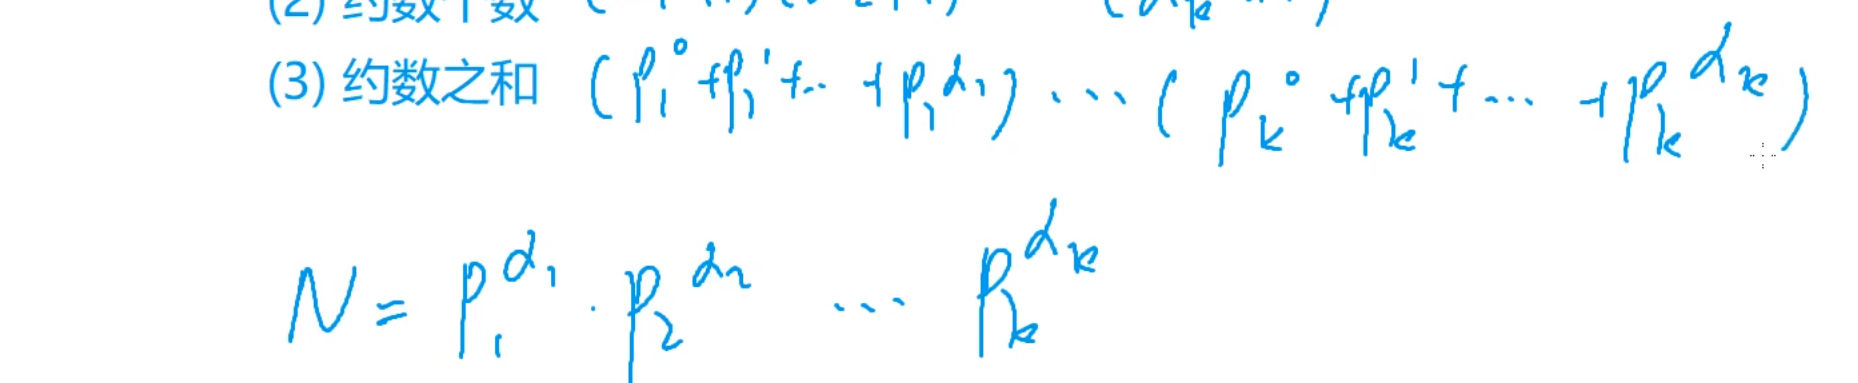 (2) 约数个数
(3) 约数之和 (p₁⁰+p₁¹+…+p₁^α₁)…(pₖ⁰+pₖ¹+…+pₖ^αₖ)
N = p₁^α₁ · p₂^α₂ … pₖ^αₖ